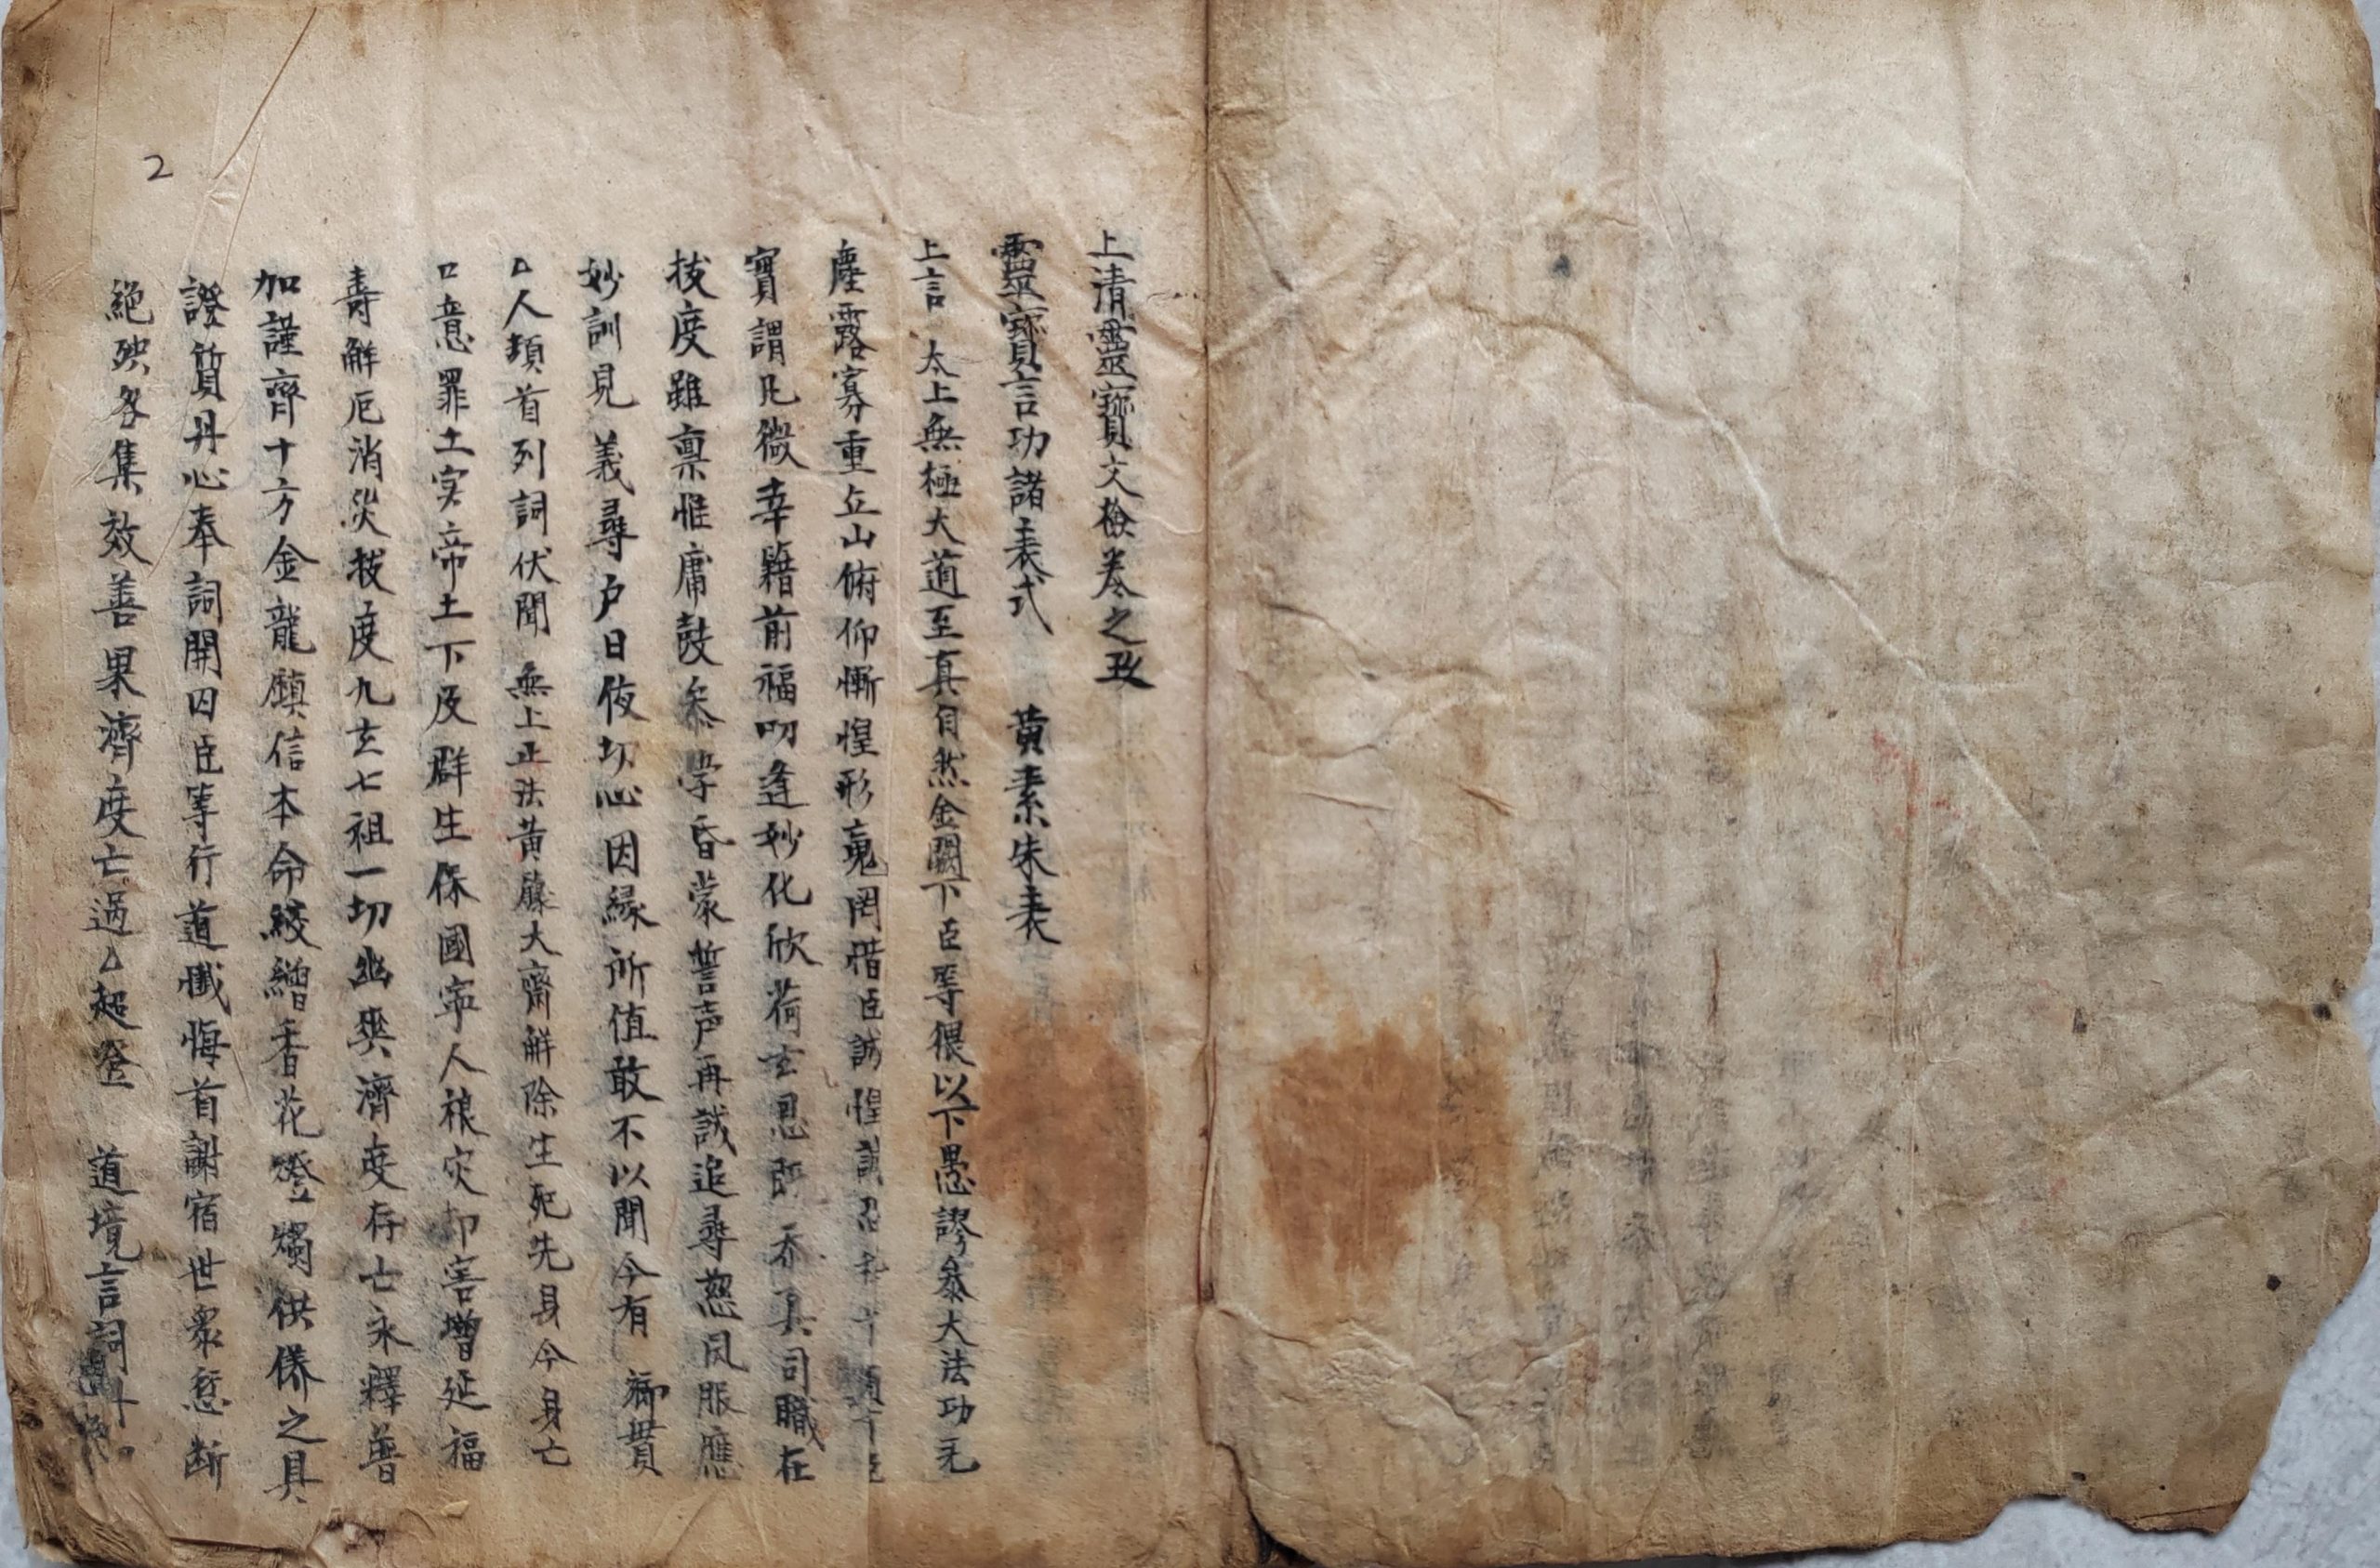 上清靈寶文檢卷之
靈寶言功諸表式 黃素朱表
上言 太上無極大道至真自然金闕下臣等猥以下愚謬叅大法功无
塵露寡重丘山俯仰慚惶形䰟罔措臣誠惶誠
實謂凡微幸籍前福叨逢妙化欣荷玄恩 忝真司職在
拔度雖稟惟庸鼓叅學昏蒙誓声再誠追尋慈凤服應
妙訓見 義尋户日夜切心因緣所值敢不以聞今有 鄉貫
厶人頓首列詞伏聞 無上正法黃籙大齋解除生死先身今身亡
口意罪土穸帝土下及群生保國寕人禳灾却害增延福
壽解厄消災拔度九玄七祖一切幽爽濟度存亡永釋普
加謹齊十方金龍鎮信本命紋繒香花燈燭供俻之具
證質丹心奉詞開囚臣等行道懺悔首謝宿世衆愆断
絕殃咎集效善果濟度亡過厶超登 道境言詞
2